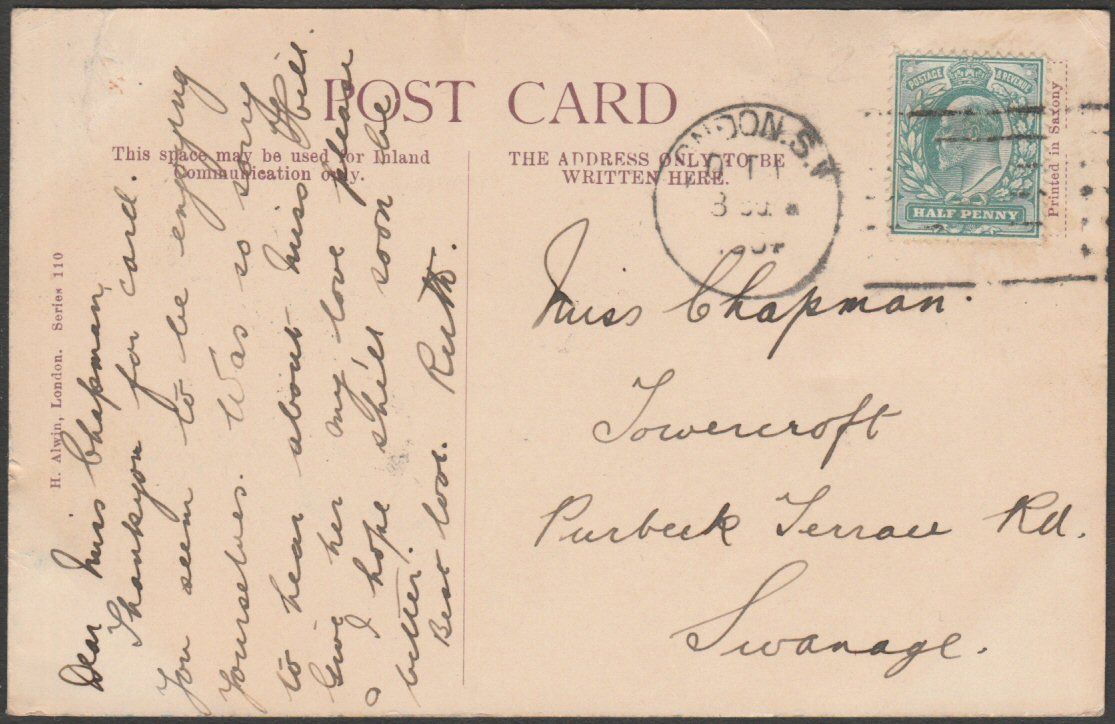 POST CARD
This space may be used for Inland
Communication only.
THE ADDRESS ONLY TO BE
WRITTEN HERE.
H. Alwin, London. Series 110
Printed in Saxony
POSTAGE & REVENUE
HALF PENNY
LONDON.S.W
Dear Miss Chapman,
Thankyou for card.
You seem to be enjoying
yourselves. Was so sorry
to hear about Miss Hill.
Give her my love please
I hope she'll soon be
better.
Best love. Ruth.
Miss Chapman.
Towercroft
Purbeck Terrace Rd.
Swanage.